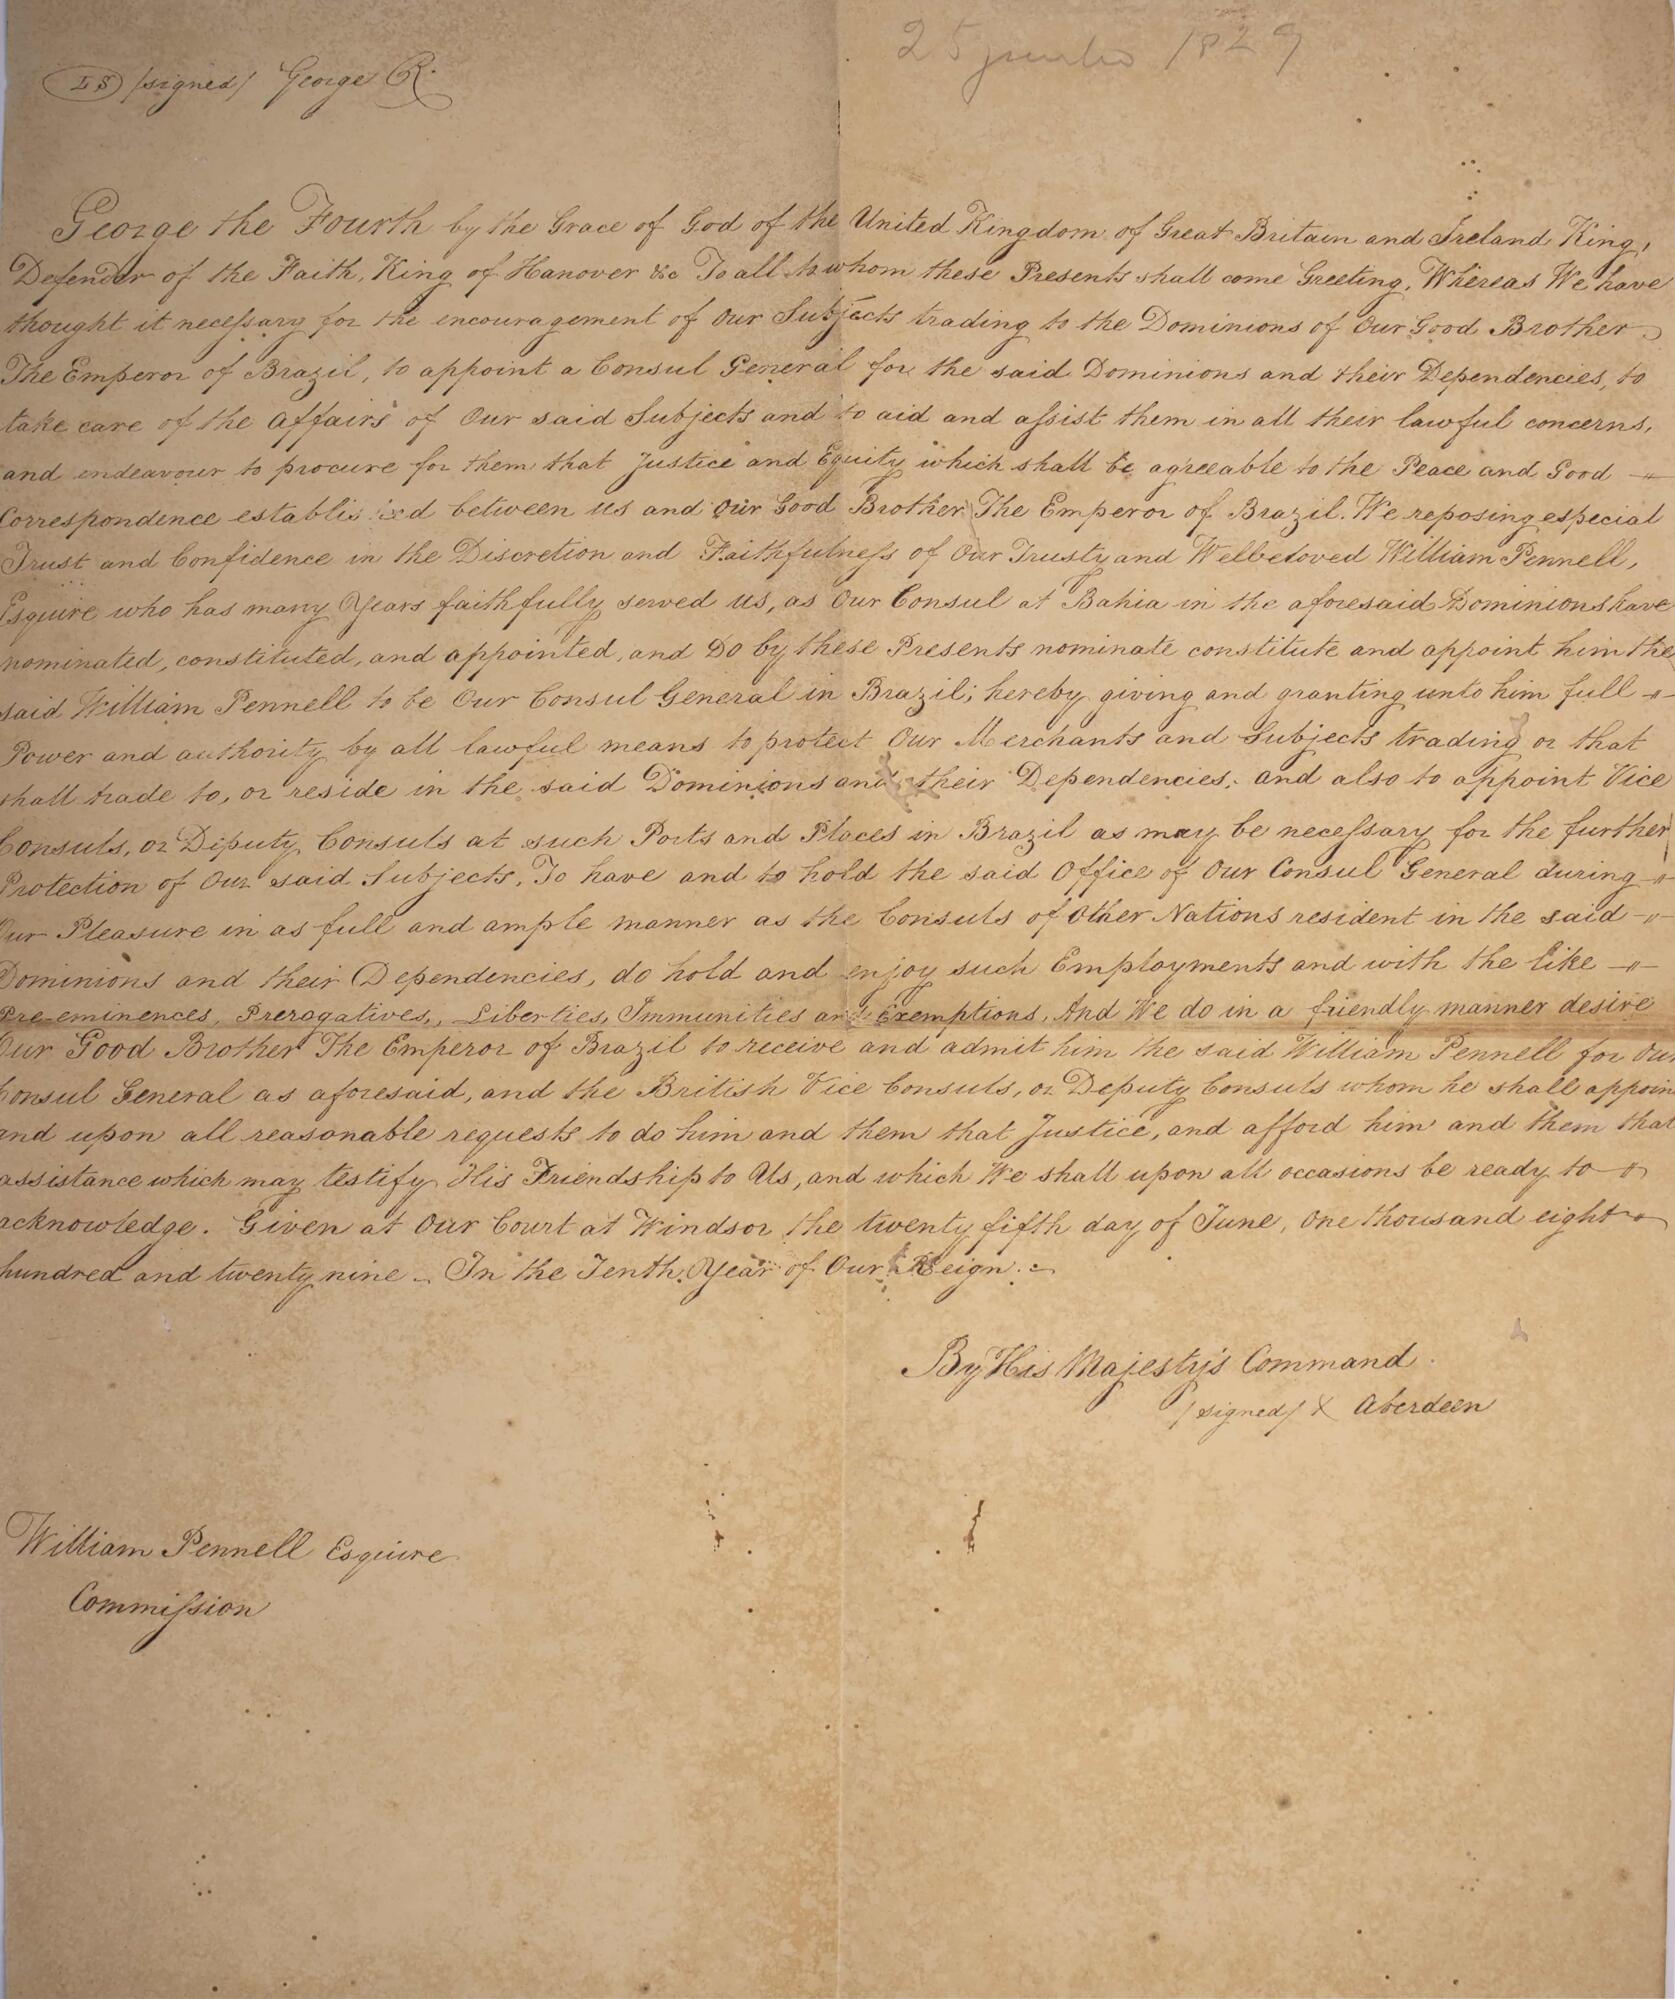 25 junho 1829
LS /signed/ George R.
George the Fourth by the Grace of God of the United Kingdom of Great Britain and Ireland King,
Defender of the Faith, King of Hanover &c To all to whom these Presents shall come Greeting. Whereas We have
thought it neceſsary for the encouragement of Our Subjects trading to the Dominions of Our Good Brother
The Emperor of Brazil, to appoint a Consul General for the said Dominions and their Dependencies, to
take care of the affairs of Our said Subjects and to aid and aſsist them in all their lawful concerns,
and endeavour to procure for them that Justice and Equity which shall be agreeable to the Peace and Good
Correspondence established between us and Our Good Brother The Emperor of Brazil. We reposing especial
Trust and Confidence in the Discretion and Faithfulneſs of Our Trusty and Welbeloved William Pennell,
Esquire who has many Years faithfully served us, as Our Consul at Bahia in the aforesaid Dominions have
nominated, constituted, and appointed, and Do by these Presents nominate constitute and appoint him the
said William Pennell to be Our Consul General in Brazil; hereby giving and granting unto him full
Power and authority by all lawful means to protect Our Merchants and Subjects trading or that
shall trade to, or reside in the said Dominions and their Dependencies; and also to appoint Vice
Consuls, or Diputy Consuls at such Ports and Places in Brazil as may be neceſsary for the further
Protection of Our said Subjects. To have and to hold the said Office of Our Consul General during
Our Pleasure in as full and ample manner as the Consuls of Other Nations resident in the said
Dominions and their Dependencies, do hold and enjoy such Employments and with the like
Pre-eminences, Prerogatives, Liberties, Immunities and Exemptions. And We do in a friendly manner desire
Our Good Brother The Emperor of Brazil to receive and admit him the said William Pennell for Our
Consul General as aforesaid, and the British Vice Consuls, or Deputy Consuls whom he shall appoin
and upon all reasonable requests to do him and them that Justice, and afford him and them that
assistance which may testify His Friendship to Us, and which We shall upon all occasions be ready to
acknowledge. Given at Our Court at Windsor the twenty fifth day of June, One thousand eight
hundred and twenty nine - In the Tenth Year of Our Reign.
By His Majesty's Command.
/signed/ X Aberdeen
William Pennell Esquire
Commiſsion